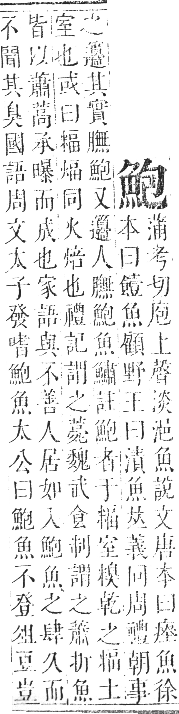 鮑
蒲考切庖上聲淡浥魚說文唐本曰瘞魚徐
本曰饐魚顧野王曰漬魚𠀤義同周禮朝事
之籩其實膴鮑又籩人膴鮑魚鱐註鮑者于楅室糗乾之楅土
室也或曰楅煏同火焙也禮記謂之薧魏武食制謂之蕭折魚
皆以蕭蒿承曝而成也家語與不善人居如入鮑魚之肆久而
不聞其臭國語周文太子發嗜鮑魚太公曰鮑魚不登俎豆豈